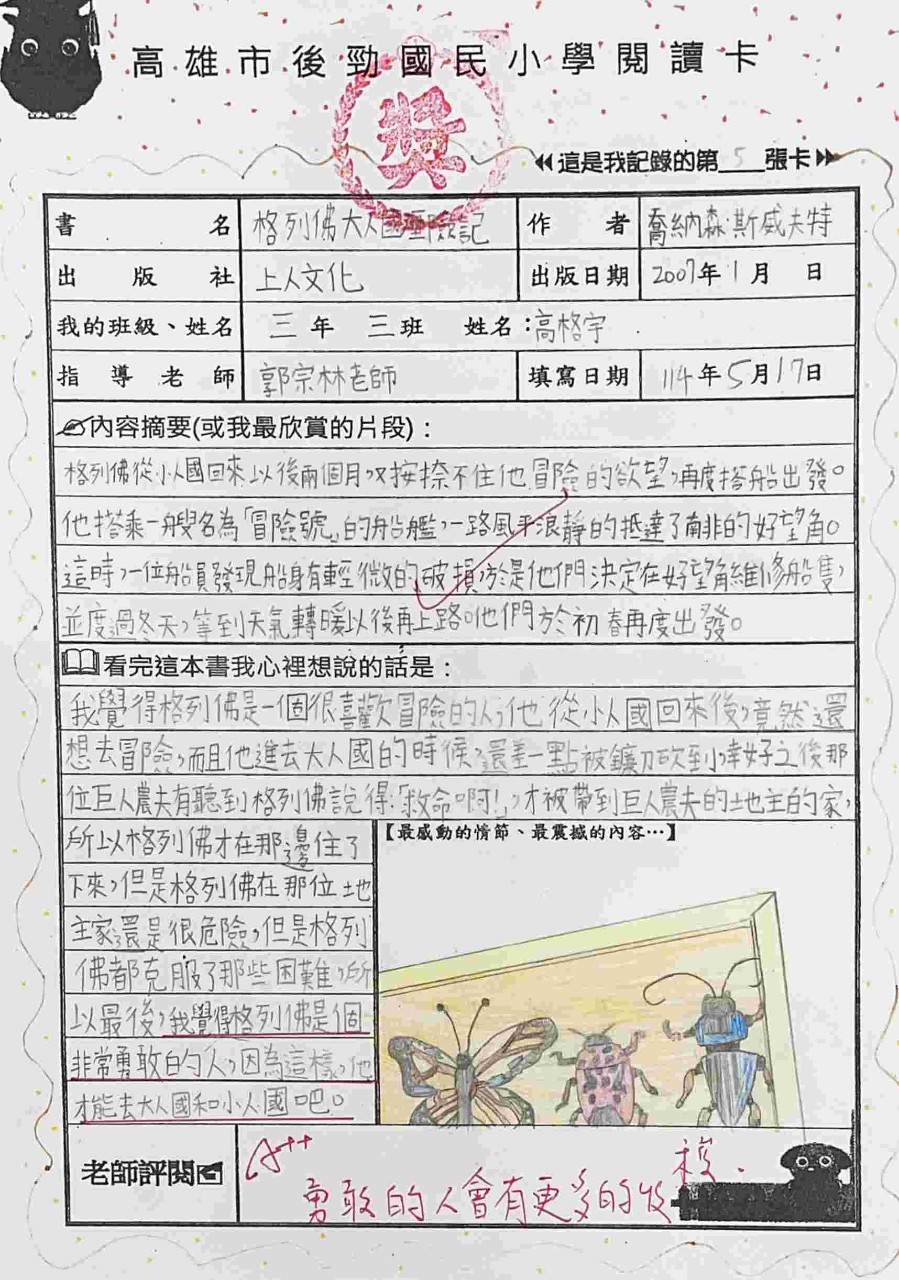 高雄市後勁國民小學閱讀卡
獎
這是我記錄的第 5 張卡
書名 格列佛大人國歷險記 作者 喬納森·斯威夫特
出版社 上人文化 出版日期 2007年1月 日
我的班級、姓名 三年 三班 姓名：高格宇
指導老師 郭宗林老師 填寫日期 114年5月17日
內容摘要(或我最欣賞的片段)：
格列佛從小人國回來以後兩個月，又按捺不住他冒險的欲望，再度搭船出發。
他搭乘一艘名為「冒險號」的船艦，一路風平浪靜的抵達了南非的好望角。
這時，一位船員發現船身有輕微的破損，於是他們決定在好望角維修船隻，
並度過冬天，等到天氣轉暖以後再上路。他們於初春再度出發。
看完這本書我心裡想說的話是：
我覺得格列佛是一個很喜歡冒險的人，他從小人國回來後，竟然還
想去冒險，而且他進去大人國的時候，還差一點被鐮刀砍到，幸好之後那
位巨人農夫有聽到格列佛說得：「救命啊！」，才被帶到巨人農夫的地主的家，
所以格列佛才在那邊住了
下來，但是格列佛在那位地
主家還是很危險，但是格列
佛都克服了那些困難，所
以最後，我覺得格列佛是個
非常勇敢的人，因為這樣，他
才能去大人國和小人國吧。
【最感動的情節、最震撼的內容…】
老師評閱
A++
勇敢的人會有更多的收